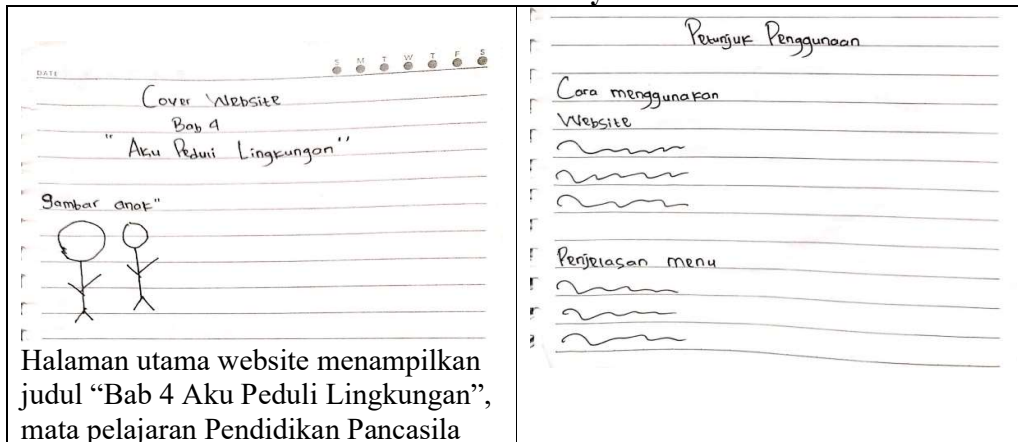 DATE
S M T W T F S
Cover Website
Bab 4
" Aku Peduli Lingkungan"
gambar anak"
Halaman utama website menampilkan
judul “Bab 4 Aku Peduli Lingkungan”,
mata pelajaran Pendidikan Pancasila
Petunjuk Penggunaan
Cara menggunakan
Website
Penjelasan menu